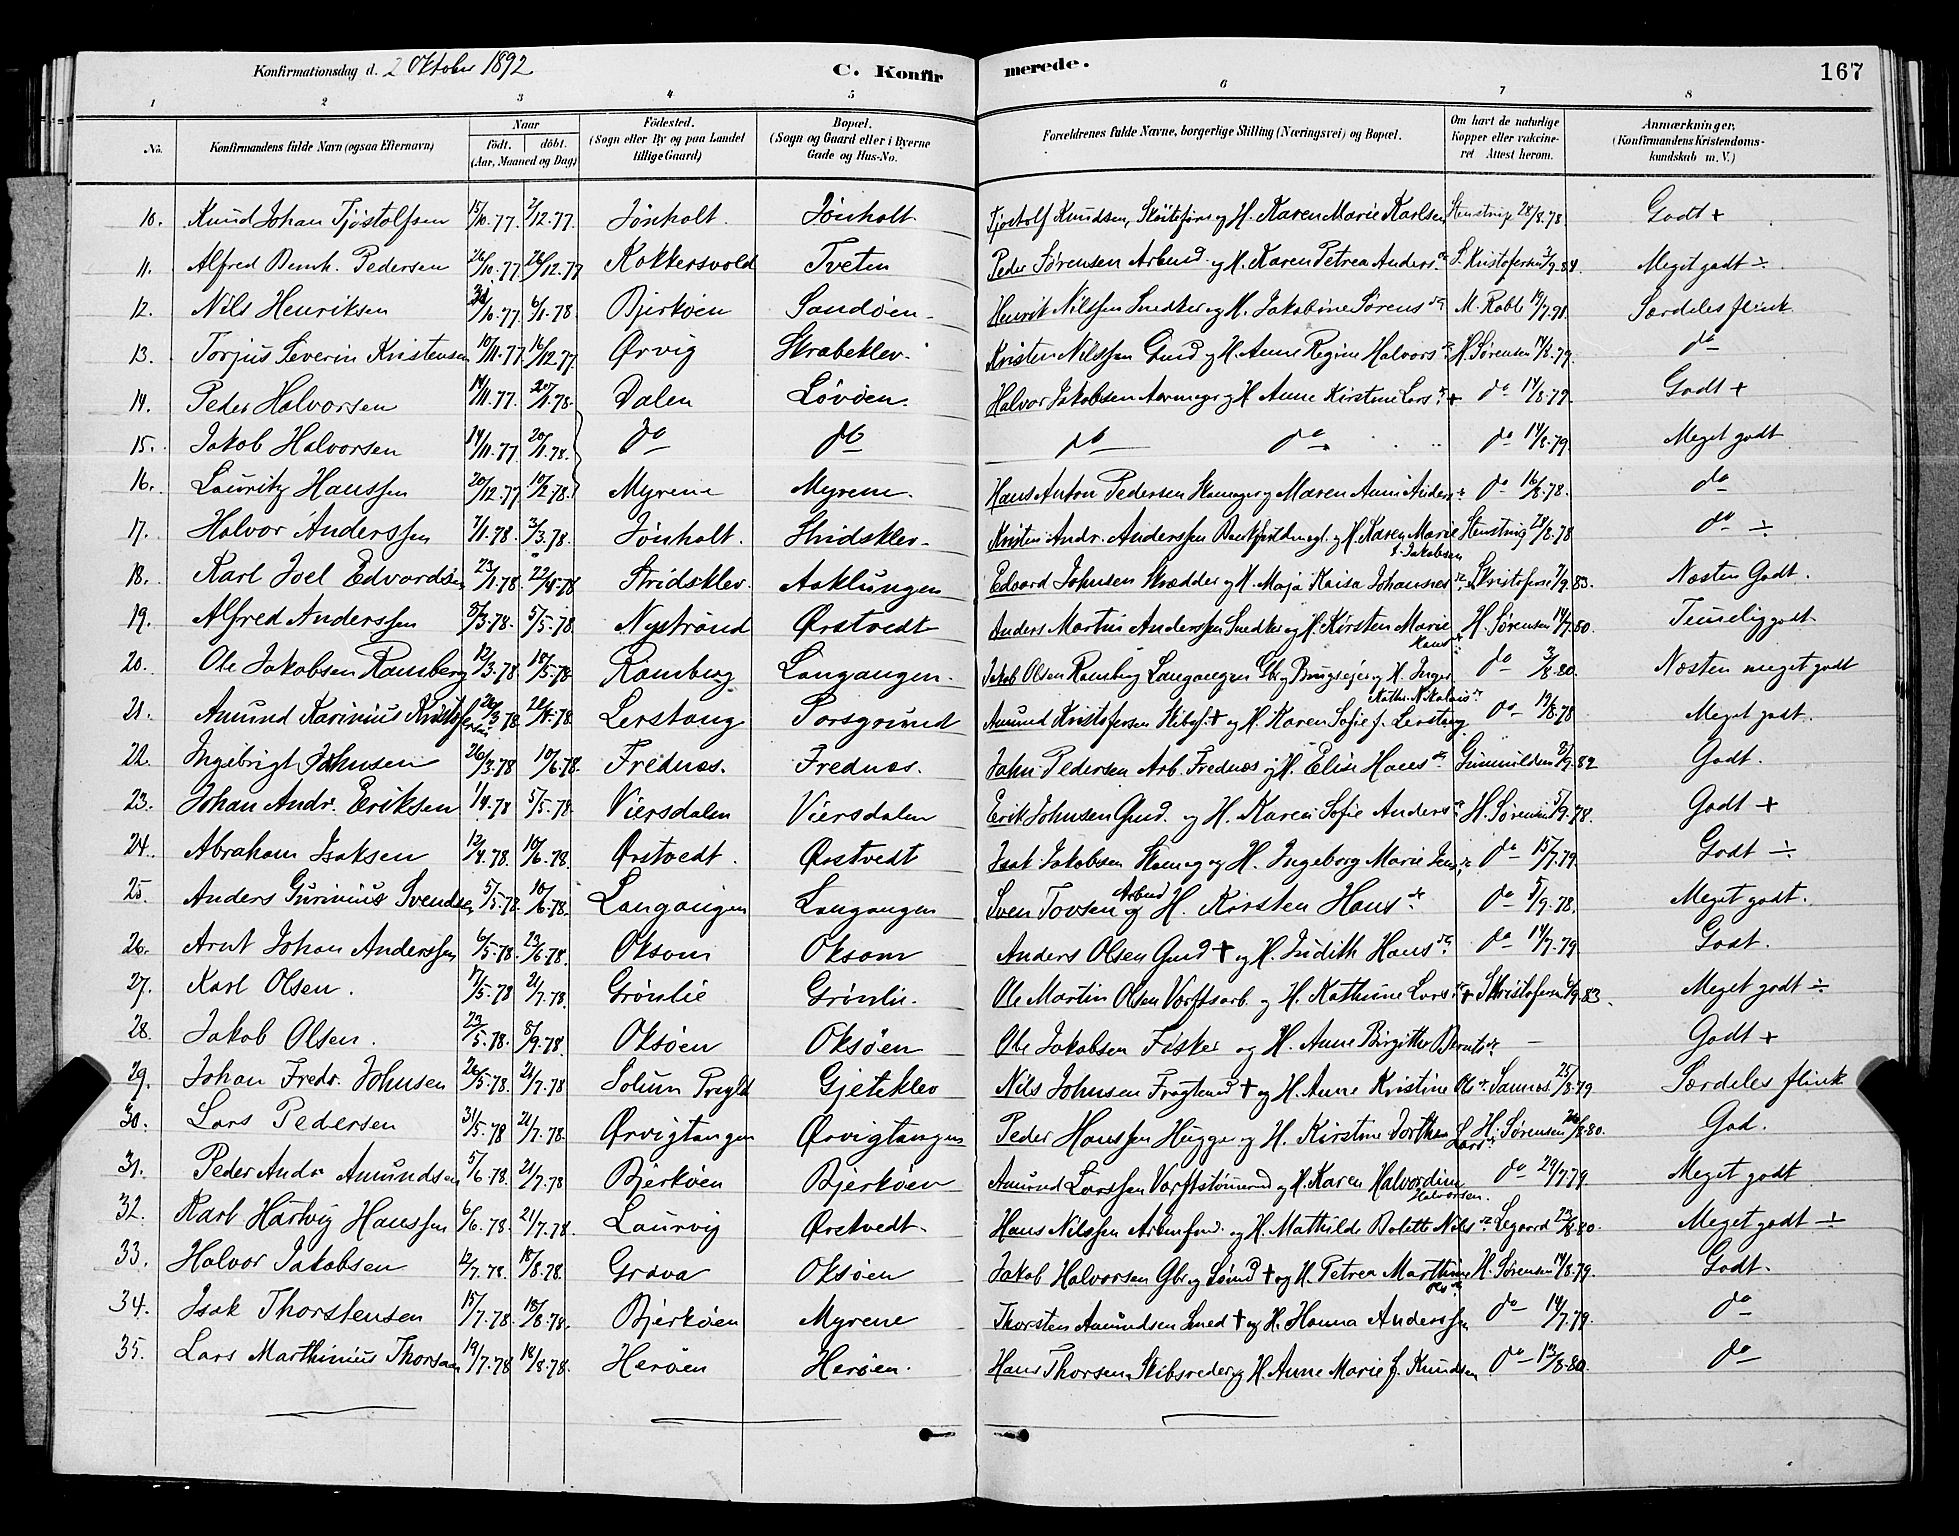 Konfirmationsdag d. 2 Oktober 1892 C. Konfirmerede. 167
1 2 3 4 5 6 7 8
No. Konfirmandens fulde Navn (ogsaa Efternavn) Naar født. døbt. (Aar, Maaned og Dag) Fødested. (Sogn eller By og paa Landet tillige Gaard) Bopæl. (Sogn og Gaard eller i Byerne Gade og Hus-No. Forældrenes fulde Navne, borgerlige Stilling (Næringsvei) og Bopæl. Om havt de naturlige Kopper eller vakcineret Attest herom. Anmærkninger. (Konfirmandens Kristendomskundskab m. V.)
10. Knud Johan Tjøstolfsen 15/10.77 2/12.77 Jønholt. Jønholt Tjøstolf Knudsen, Skøitefører og H. Karen Marie Karlsen Stenstrup 28/8.78 Godt +
11. Alfred Bernh. Pedersen 26/10.77 26/12.77 Kokkersvold Tveten Peder Sørensen Arbmd. og H. Karen Petrea Anders.dr S. Kristofersen 3/9.84 Meget godt ÷
12. Nils Henriksen 31/10.77 6/1.78 Bjerkøen Sandøen Henrik Nilssen Snedker og H. Jakobine Sørens dr M. Rabbe 19/7.78 Særdeles flink
13. Torjus Severin Kristensen 10/11.77 16/12.77 Ørvig Skrabeklev Kristen Nilssen Gmd og H. Anne Regine Halvors dr H. Sørensen 14/8.79 do
14. Peder Halvorsen 14/11.77 20/1.78 Dalen Løvøen. Halvor Jakobsen og H Anne Kirstine Lars dr + do 14/8.79 Godt +
15. Jakob Halvorsen 14/11.77 20/1.78. do do do do do 14/8.79 Meget godt
16. Lauritz Hanssen 20/12.77 10/2.78 Myrene Myrene. Hans Anton Pedersen Skomager og Maren Anne Anders dr do 16/8.78. do
17. Halvor Anderssen 7/1.78 3/3.78 Jønholt. Stridsklev Kristen Andr. Anderssen og H. Karen Marie f. Jakobsen Stenstrup 28/8.78 do ÷
18. Karl Joel Edvardsen 23/1.78 22/4.78 Stridsklev Aaklungen Edvard Johnsen Skrædder og H. Maja Kaisa Johannes dr S. Kristofersen 7/9.83. Næsten Godt.
19. Alfred Anderssen 5/3.78. 5/5.78 Nystrand Ørstvedt Anders Martin Anderssen Snedker og H. Kirsten Marie Hans dr H. Sørensen 14/7.80. Temelig godt
20. Ole Jakobsen Ramberg 12/3.78 18/5.78 Ramberg Langangen. Jakob Olsen Ramberg Langangen Gbr og Brugseier og H. Inger Kathr. Nikolais dr do 3/8.80. Næsten meget godt
21. Amund Karinius Kristofersen 20/3.78 22/4.78 Lerstang Porsgrund Amund Kristofersen Skibsf. + og H. Karen Sofie f. Lerstang do 19/8.78 Meget godt.
22. Ingebrigt Johnsen 26/3.78 10/6.78. Frednæs. Frednæs. John Pedersen Arb. Frednæs og H. Elise Hans dr Gunnulden 2/9.82 Godt.
23. Johan Andr. Eriksen 1/4.78 5/5.78. Viersdalen Viersdalen Erik Johnsen Gmd. og H. Karen Sofie Anders dr H. Sørensen 5/9.78. Godt +
24. Abraham Isaksen 13/4.78. 10/6.78. Ørstvedt. Ørstvedt Isak Jakobsen Skomag og H. Ingeborg Marie Jens dr do 15/7.79. Godt ÷
25. Anders Gurinius Svendsen 5/5.78. 10/6.78. Langangen Langangen Sven Tovsen Arbmd og H. Kirsten Hans dr do 5/9.78. Meget godt.
26. Arnt Johan Anderssen 6/5.78. 23/6.78. Oksom Oksom Anders Olsen Gmd + og H. Judith Hans dr do 14/7.79 Godt.
27. Karl Olsen. 17/5.78 21/7.78. Grönlie Grönlie. Ole Martin Olsen Værftsarb. og H. Kathrine Lars dr + S. Kristofersen 6/9.83. Meget godt ÷
28. Jakob Olsen. 23/5.78. 8/9.78. Oksøen Oksøen Ole Jakobsen Fisker og H. Anne Birgitte Bernts dr — Godt +
29. Johan Fredr. Johnsen 26/5.78. 21/7.78 Solum Gjeteklev Nils Johnsen + og H. Anne Kristine Ols dr Sannes 25/8.79 Særdeles flink
30. Lars Pedersen 31/5.78 21/7.78. Ørvigtangen Ørvigtangen Peder Hanssen Hugger og H. Kirstine Dorthea Lars dr H. Sørensen 26/8.80. God.
31. Peder Andr Amundsen 5/6.78. 21/7.78 Bjerkøen Bjerkøen Amund Larssen Værftstømmermd og H. Karen Halvordine Halvorsen. do 29/7.79 Meget godt
32. Karl Hartvig Hanssen 6/6.78. 21/7.78. Laurvig Ørstvedt Hans Nilssen og H. Mathilde Bolette Nils dr Legaard 23/8.80. Meget godt ÷
33. Halvor Jakobsen 12/7.78. 18/8.78. Grava Oksøen Jakob Halvorsen Gbr og Sømd + og H. Petrea Marthine Ols dr H. Sørensen 14/8.79. Godt.
34. Isak Thorstensen 15/7.78. 18/8.78. Bjerkøen Myrene Thorsten Amundsen Smed + og H. Hanna Anderssen do 14/7.79. do
35. Lars Marthinius Thorsen 19/7.78 18/8.78. Herøen Herøen. Hans Thorsen Skibsreder og H. Anne Marie f. Knudsen do 13/8.80. do